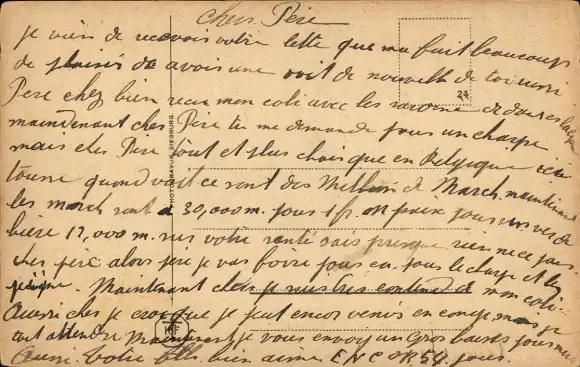 Cher Père
je vien de recevoir votre lette que ma fait beaucoup
de plaisir de avoir une de nouvelle de toi
Père chez bien mon coli avec les savone
maindenant cher Père tu me demande pous un charpe
mais cher Père tout et plus chois que en Belgique ici
24
PHOTOGRAVUR SIEGBURG
tourne quand voit ce sont des Million de March maintenant
les march sont a 30,000 m. pous 1 fr. on paix pous un ver de
bière 17,000 m. sur votre santé sais presque rien ne
cher père alors père je vas fovre pous en pous le charpe et les
Maintenant cher je suis très contend de mon coli
Aussi cher je croi que je faut encor venir en conge mais je
tout attendre Maintenant je vous envoy un gros baisez pous
aussi. Votre fils bien aimer ENCOR. 54 jous.